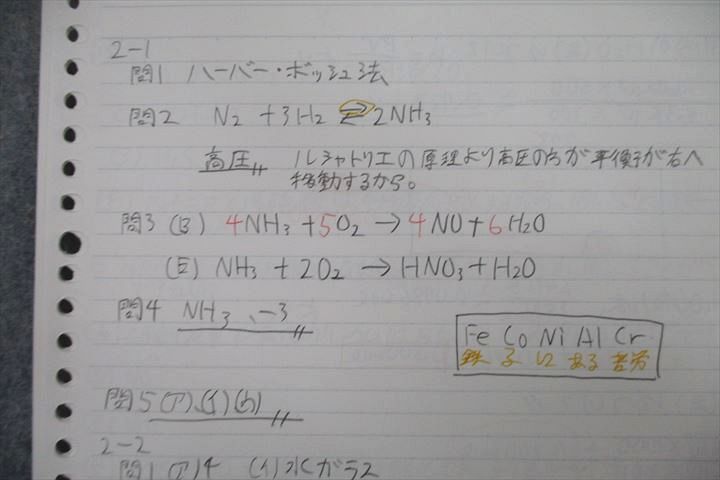 2-1
問1 ハーバー・ボッシュ法
問2 N2 + 3H2 ⇄ 2NH3
高圧 ルシャトリエの原理より高圧の方が平衡が右へ
移動するから。
問3 (B) 4NH3 + 5O2 → 4NO + 6H2O
(E) NH3 + 2O2 → HNO3 + H2O
問4 NH3、-3
Fe Co Ni Al Cr
鉄 子 に ある 苦労
問5 (ア)、(イ)、(カ)
2-2
問1 (ア) 4 (イ) 水ガラス